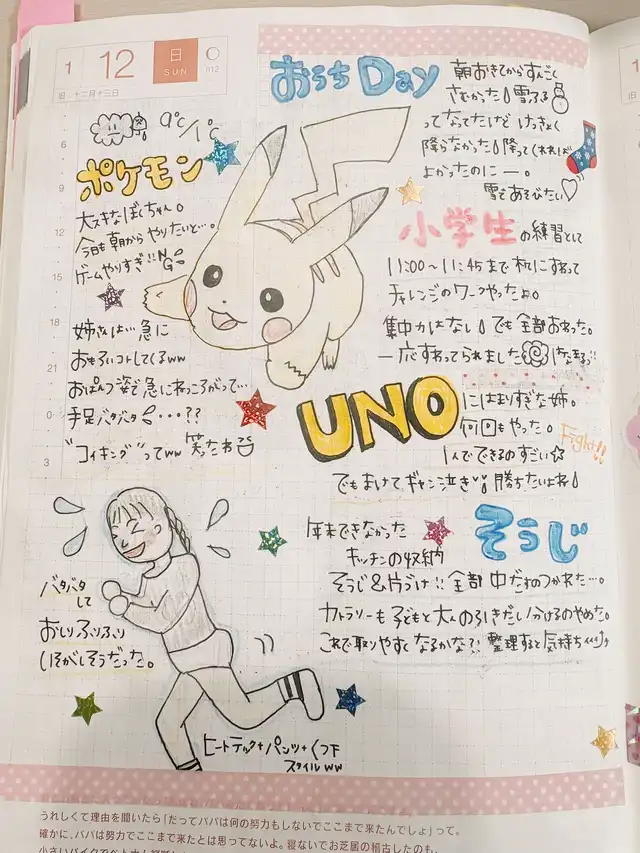 1 12 日 SUN
旧 十二月十三日
9℃/1℃
おうちDay
朝おきてからすんごく
さむかった! 雪ふる
ってなってたけど けっきょく
降らなかった! 降ってくれれば
よかったのにー。
雪であそびたい♡
ポケモン
大スキなぼくちゃん。
今日も朝からやりたいと…。
ゲームやりすぎ!! NG
小学生の練習として
11:00〜11:45まで机にすわって
チャレンジのワークやったよ。
集中力はない! でも全部おわった。
一応すわってられました
はなまる!!
姉さんは… 急に
おもろいコトしてくるww
おぱんつ姿で急にねっころがって…
手足バタバタ…??
"コイキング"ってww 笑ったわ
UNO
にはまりすぎな姉。
何回もやった。
Fight!!
1人でできるのすごい☆
でもまけてギャン泣き 勝ちたいよね!
そうじ
年末できなかった
キッチンの収納
そうじ&片づけ!! 全部中だすのつかれた…。
カトラリーも子どもと大人の引きだし分けるのやめた。
これで取りやすくなるかな?! 整理すると気持ちイイ
バタバタ
して
おしりふりふり
いそがしそうだった。
ヒートテック+パンツ+くつ下
スタイルww
6
9
12
15
18
21
0
3
うれしくて理由を聞いたら「だってパパは何の努力もしないでここまで来たんでしょ」って。
確かに、パパは努力でここまで来たとは思ってないよ。寝ないでお芝居の稽古したのも、